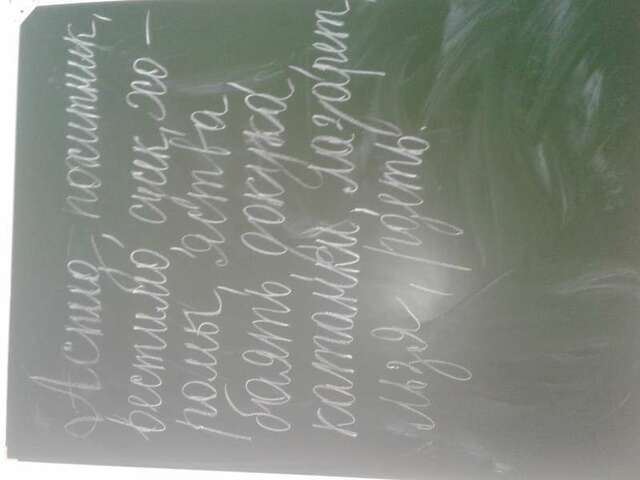 Аспид, похитник,
вестимо, сусек, хо-
ромы, яства,
баять, докука
катанки, лазарет,
льзя, рдеть.